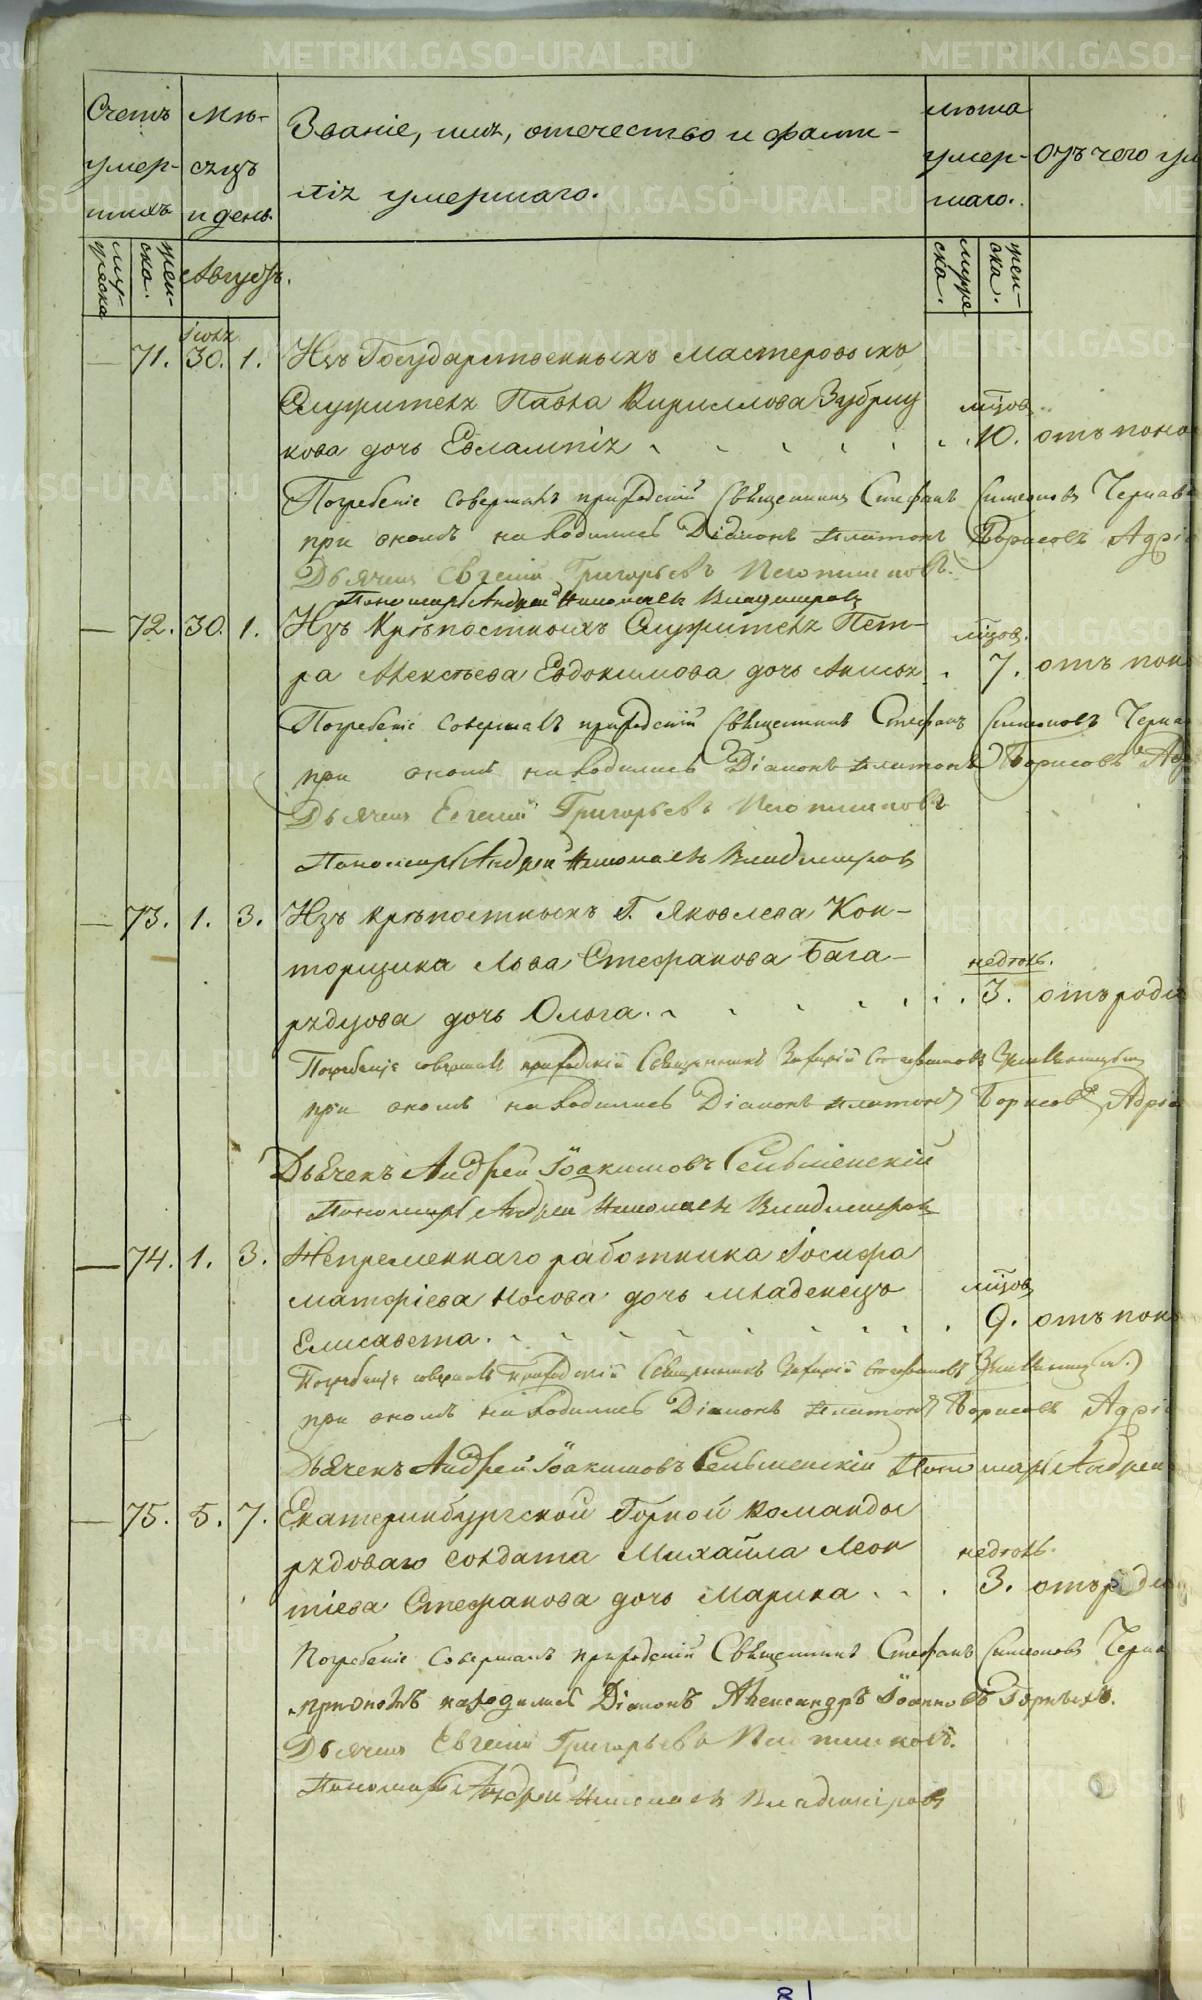 METRIKI.GASO-URAL.RU
Счетъ умер- шихъ
Мѣ- сяцъ и день.
Званіе, имя, отечество и фами-
лія умершаго.
лѣта умер- шаго.
Отъ чего ум
му- жеска
жен- ска.
Августъ.
муже ска.
жен- ска.
Іюля
71. 30. 1. Изъ Государственныхъ мастеровыхъ
Служителя Павла Кириллова Зубриц мцов.
кова дочь Евлампія 10. отъ поно
Погребеніе совершалъ приходскій Священникъ Стефанъ Симеоновъ Черна
при ономъ находились Діаконъ Платонъ Борисовъ Адрі
Дьячекъ Евгеній Григорьевъ
Пономарь Андрей Николаевъ Владимировъ
72. 30. 1. Изъ крѣпостныхъ Служителя Пет- мцов.
ра Алексѣева Евдокимова дочь 7. отъ поно
Погребеніе совершалъ приходскій Священникъ Стефанъ Симеоновъ Черна
при ономъ находились Діаконъ Платонъ Борисовъ Адр
Дьячекъ Евгеній Григорьевъ
Пономарь Андрей Николаевъ Владимировъ
73. 1. 3. Изъ крѣпостныхъ Г. Яковлева Кон-
торщика Льва Стефанова Бага- недѣль.
рядцова дочь Ольга. 3. отъ роди
Погребеніе совершалъ приходскій Священникъ Захарій Стефановъ
при ономъ находились Діаконъ Платонъ Борисовъ Адріа
Дьячекъ Андрей Іоакимовъ Сельменскій
Пономарь Андрей Николаевъ Владимировъ
74. 1. 3. Непременнаго работника Іосифа
Матфіева Носова дочь младенецъ мцов
Елисавета. 9. отъ поно
Погребеніе совершалъ приходскій Священникъ Захарій Стефановъ
при ономъ находились Діаконъ Платонъ Борисовъ Адріа
Дьячекъ Андрей Іоакимовъ Сельменскій Пономарь Андрей
75. 5. 7. Екатеринбургской Горной команды
рядоваго солдата Михайла Леон недѣль.
тіева Стефанова дочь Марина 3. отъ роди
Погребеніе совершалъ приходскій Священникъ Стефанъ Симеоновъ Черна
при ономъ находились Діаконъ Александръ Іоанновъ Горныхъ.
Дьячекъ Евгеній Григорьевъ
Пономарь Андрей Николаевъ Владимировъ